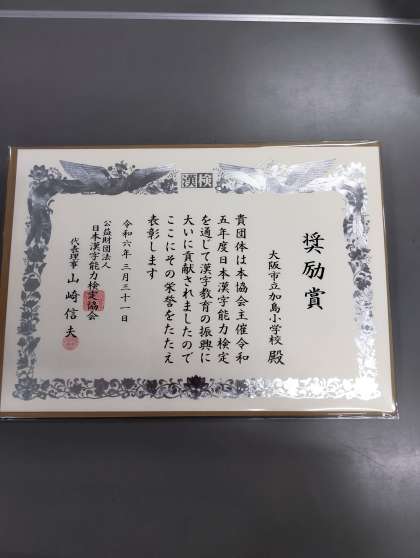 漢検
奨励賞
大阪市立加島小学校 殿
貴団体は本協会主催令和
五年度日本漢字能力検定
を通じて漢字教育の振興に
大いに貢献されましたので
ここにその栄誉をたたえ
表彰します
令和六年三月三十一日
公益財団法人
日本漢字能力検定協会
代表理事 山崎信夫